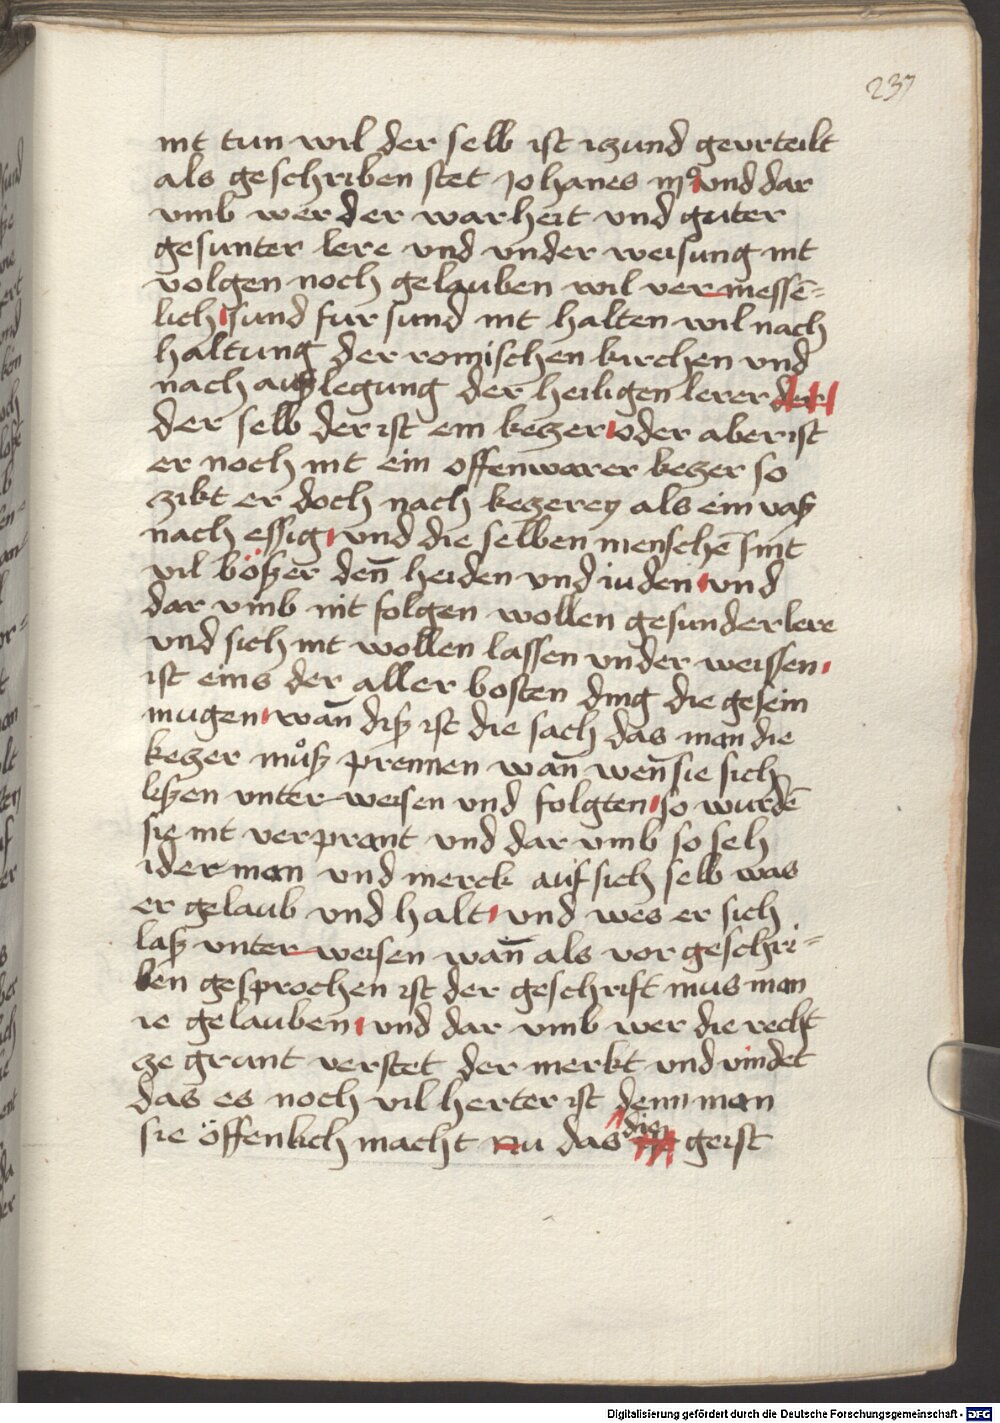 237
nit tun wil der selb ist iczund geurteilt
als geschriben stet Johanes iijº und dar
vmb wer der warheit vnd guter
gesunter lere vnd vnder weisung nit
volgen noch gelauben wil vermessē=
lich sund fur sund nit halten wil nach
haltung der romischen kirchen vnd
nach außlegung der heiligen lerer der
der selb der ist ein keczer oder aber ist
er noch nit ein offenwarer keczer so
zikt er doch nach keczerey als ein vaß
nach essig vnd die selben menschē sint
vil bößer deñ heiden vnd iuden vnd
dar vmb nit folgen wollen gesunder lere
vnd sich nit wollen lassen vnder weissen
ist eins der aller bosten ding die gesein
mugen wañ diß ist die sach das man die
keczer můß prennen wañ weñ sie sich
lißen unter weisen vnd folgten so wurdē
sie nit verprant vnd dar vmb so seh
iderman vnd merck auf sich selb was
er gelaub vnd halt vnd wes er sich
laß vnter weisen wañ als vor geschri=
ben gesprochen ist der geschrift mus man
ie gelauben vnd dar vmb wer die recht
ze grunt verstet der merkt vnd vindet
das es noch vil herter ist denn man
sie öffenlich macht nu das die geist
Digitalisierung gefördert durch die Deutsche Forschungsgemeinschaft - DFG